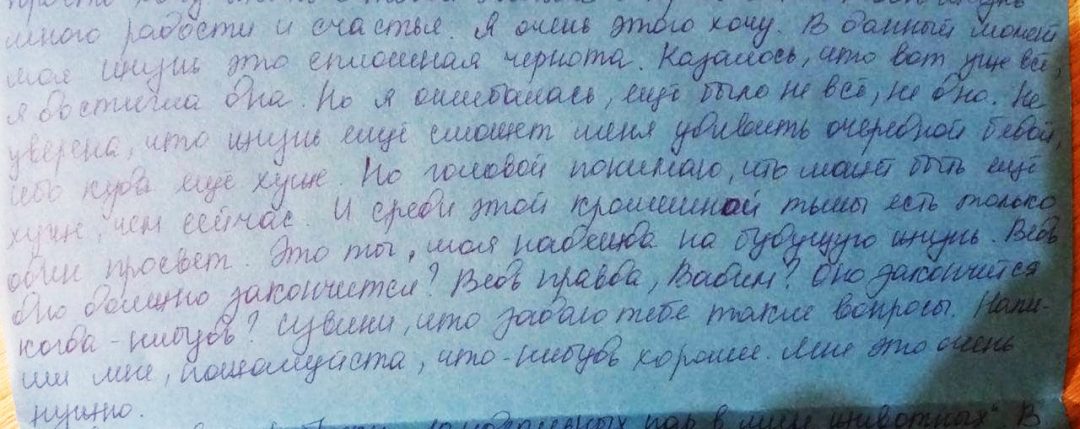 много радости и счастья. Я очень этого хочу. В данный момент
моя жизнь это сплошная чернота. Казалось, что вот уже всё,
я достигла дна. Но я ошибалась, ещё было не всё, не дно. Не
уверена, что жизнь ещё сможет меня удивить очередной бедой,
ибо куда ещё хуже. Но головой понимаю, что может быть ещё
хуже, чем сейчас. И среди этой крошечной тьмы есть только
один просвет. Это ты, моя надежда на будущую жизнь. Ведь
дно должно закончится? Ведь правда, Вадим? Оно закончится
когда-нибудь? Извини, что задаю тебе такие вопросы. Напи-
ши мне, пожалуйста, что-нибудь хорошее. Мне это очень
нужно.
пар в мире животных". В